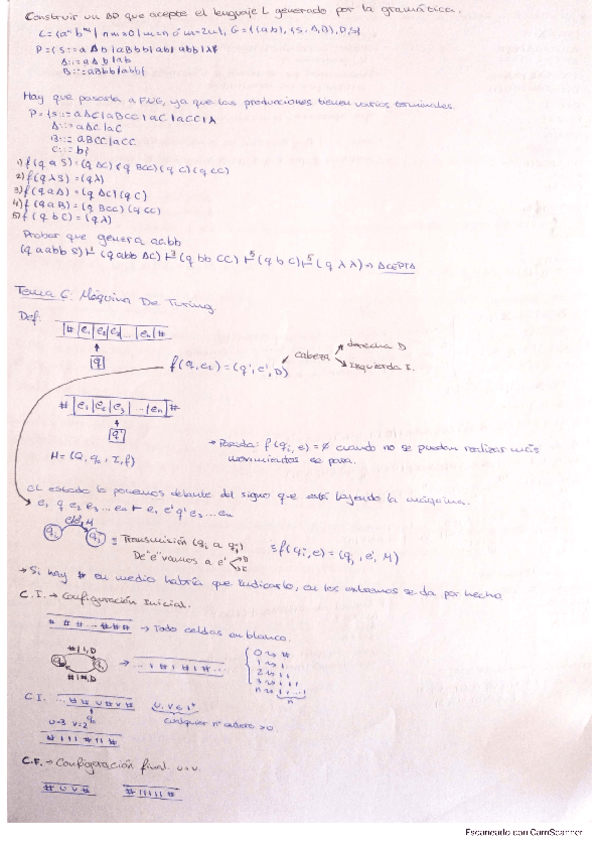 Construir un AP que acepte el lenguaje L generado por la gramática.
L={aⁿ bᵐ / n,m>0 / m=n ó m=2n}, G=({a,b},{S,A,B},P,S}
P={S::= a A b | aBbb | ab | abb | λ}
A::= a A b | ab
B::= aBbb | abb}
Hay que pasarla a FNG, ya que las producciones tienen varios terminales.
P={S::= aAC | aBCC | aC | aCC | λ
A::= aAC | aC
B::= aBCC | aCC
C::= b}
1) f(q a S)=(q AC)(q BCC)(q C)(q CC)
2) f(q λ S)=(q λ)
3) f(q a A)=(q AC)(q C)
4) f(q a B)=(q BCC)(q CC)
5) f(q b C)=(q λ)
Probar que genera aabb
(q aabb S) ⊢¹ (q abb AC) ⊢³ (q bb CC) ⊢⁵ (q b C) ⊢⁵ (q λ λ) → ACEPTA
Tema 6: Máquina De Turing
Def:
|#|e₁|e₂|e₃|...|eₙ|#
q
f(q,e₂)=(q',e',D)
cabeza
derecha D
Izquierda I.
# |e₁|e₂|e₃|...|eₙ|#
q'
M=(Q, q₀, Σ, f)
→ Parada: f(qᵢ,e)=∅ cuando no se puedan realizar más
movimientos se para.
El estado lo ponemos delante del signo que está leyendo la máquina.
e₁ q e₂ e₃ ... eₙ ⊢ e₁ e' q' e₃ ... eₙ
e|e',M
qᵢ qⱼ ≡ Transmisión (qᵢ a qⱼ)
De "e" vamos a e'
D
I
≡ f(qᵢ,e)=(qⱼ,e',M)
→ Si hay # en medio habría que indicarlo, en los extremos se da por hecho
C.I. → Configuración Inicial.
# # # ... # # # → Todo celdas en blanco.
#|1,D
#|#,D
... 1 # 1 # 1 # ...
0 → #
1 → 1
2 → 11
3 → 111
n → 1...1
n
C.I. ... # # u # v #
u, v ∈ 1⁺
q₀
cualquier nº entero >0.
u=3 v=2
# 1 1 1 # 1 1 #
C.F. → Configuración final. u+v.
# u v #
# 1 1 1 1 1 #
Escaneado con CamScanner